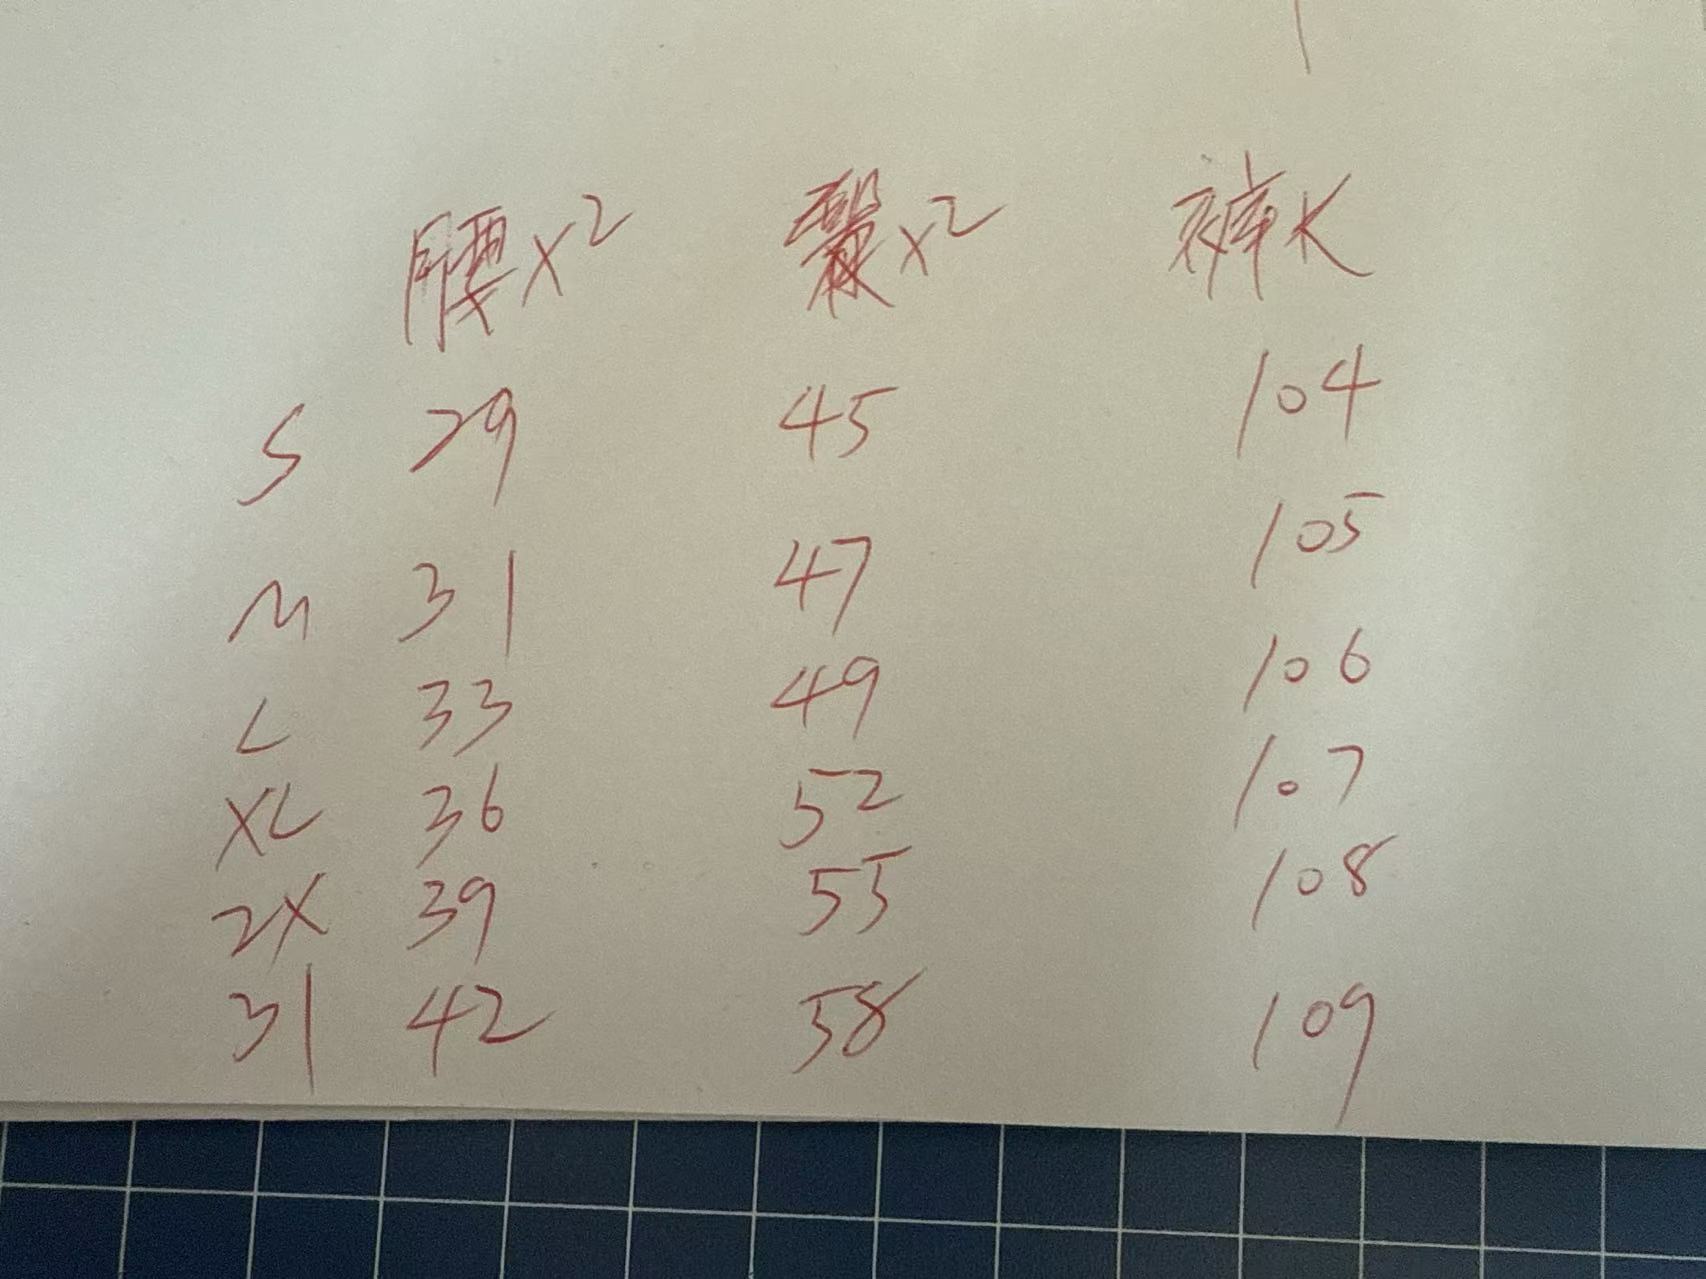 腰x2 臀x2 裤长
S 29 45 104
M 31 47 105
L 33 49 106
XL 36 52 107
2X 39 55 108
31 42 58 109